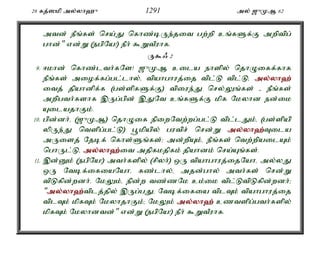 28 கத்ஸமி அல்லாஹு 1291 அல் ஜுமுஆ 62
அவன் நீங்கள் செய்து கொண்டிருந்தவை பற்றி உங்களுக்கு அறிவிப்
பான்" என்று (நபியே) நீர் கூறுவீராக.
ருகூஃ 2
9. ஈமான் கொண்டவர்களே! ஜுமுஆ உடைய நாளில் தொழுகைக்காக
நீங்கள் அழைக்கப்பட்டால், வியாபாரத்தை விட்டு விட்டு, அல்லாஹ்
வைத் தியானிக்க (பள்ளிகளுக்கு) விரைந்து செல்லுங்கள் - நீங்கள்
அறிபவர்களாக இருப்பின் இதுவே உங்களுக்கு மிக மேலான நன்மை
யுடையதாகும்.
10. பின்னர், (ஜுமுஆ) தொழுகை நிறைவேற்றப்பட்டு விட்டதும், (பள்ளியி
லிருந்து வெளிப்பட்டு) பூமியில் பரவிச் சென்று அல்லாஹ்வுடைய
அருளைத் தேடிக் கொள்ளுங்கள்; அன்றியும், நீங்கள் வெற்றியடையும்
பொருட்டு, அல்லாஹ்வை அதிகமதிகம் தியானம் செய்யுங்கள்.
11. இன்னும் (நபியே) அவர்களில் (சிலர்) ஒரு வியாபாரத்தையோ, அல்லது
ஒரு வேடிக்கையையோ, கண்டால், அதன்பால் அவர்கள் சென்று
விடுகின்றனர், மேலும், நின்ற வண்ணமே உம்மை விட்டுவிடுகின்றனர்;
"அல்லாஹ்விடத்தில் இருப்பது, வேடிக்கையை விடவும் வியாபாரத்தை
விடவும் மிகவும் மேலானதாகும்; மேலும் அல்லாஹ் உணவளிப்பவர்களில்
மிகவும் மேலானவன்" என்று (நபியே) நீர் கூறுவீராக.